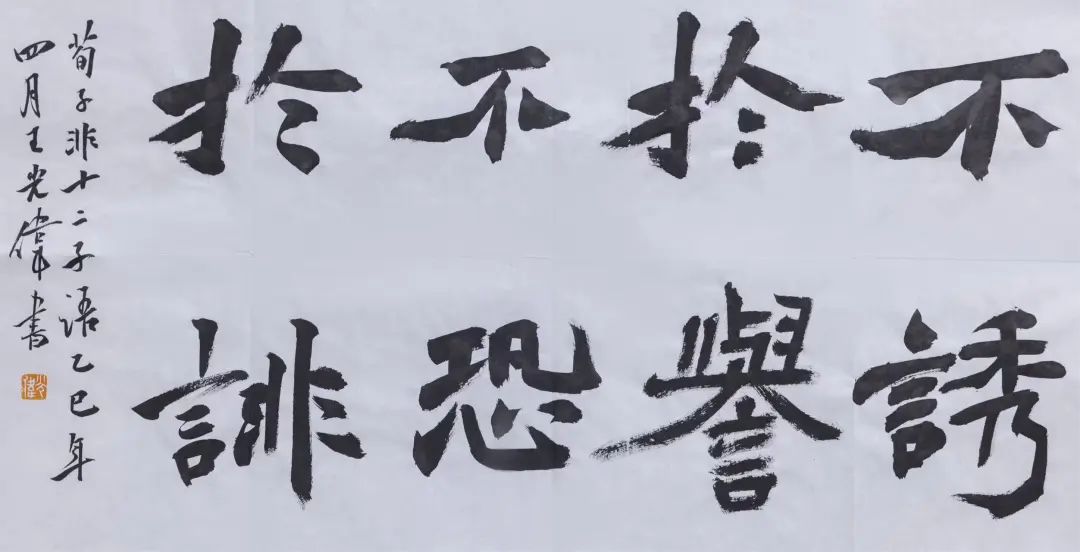 不誘
於譽
不恐
於誹
荀子非十二子語乙巳年
四月王光偉書
光偉